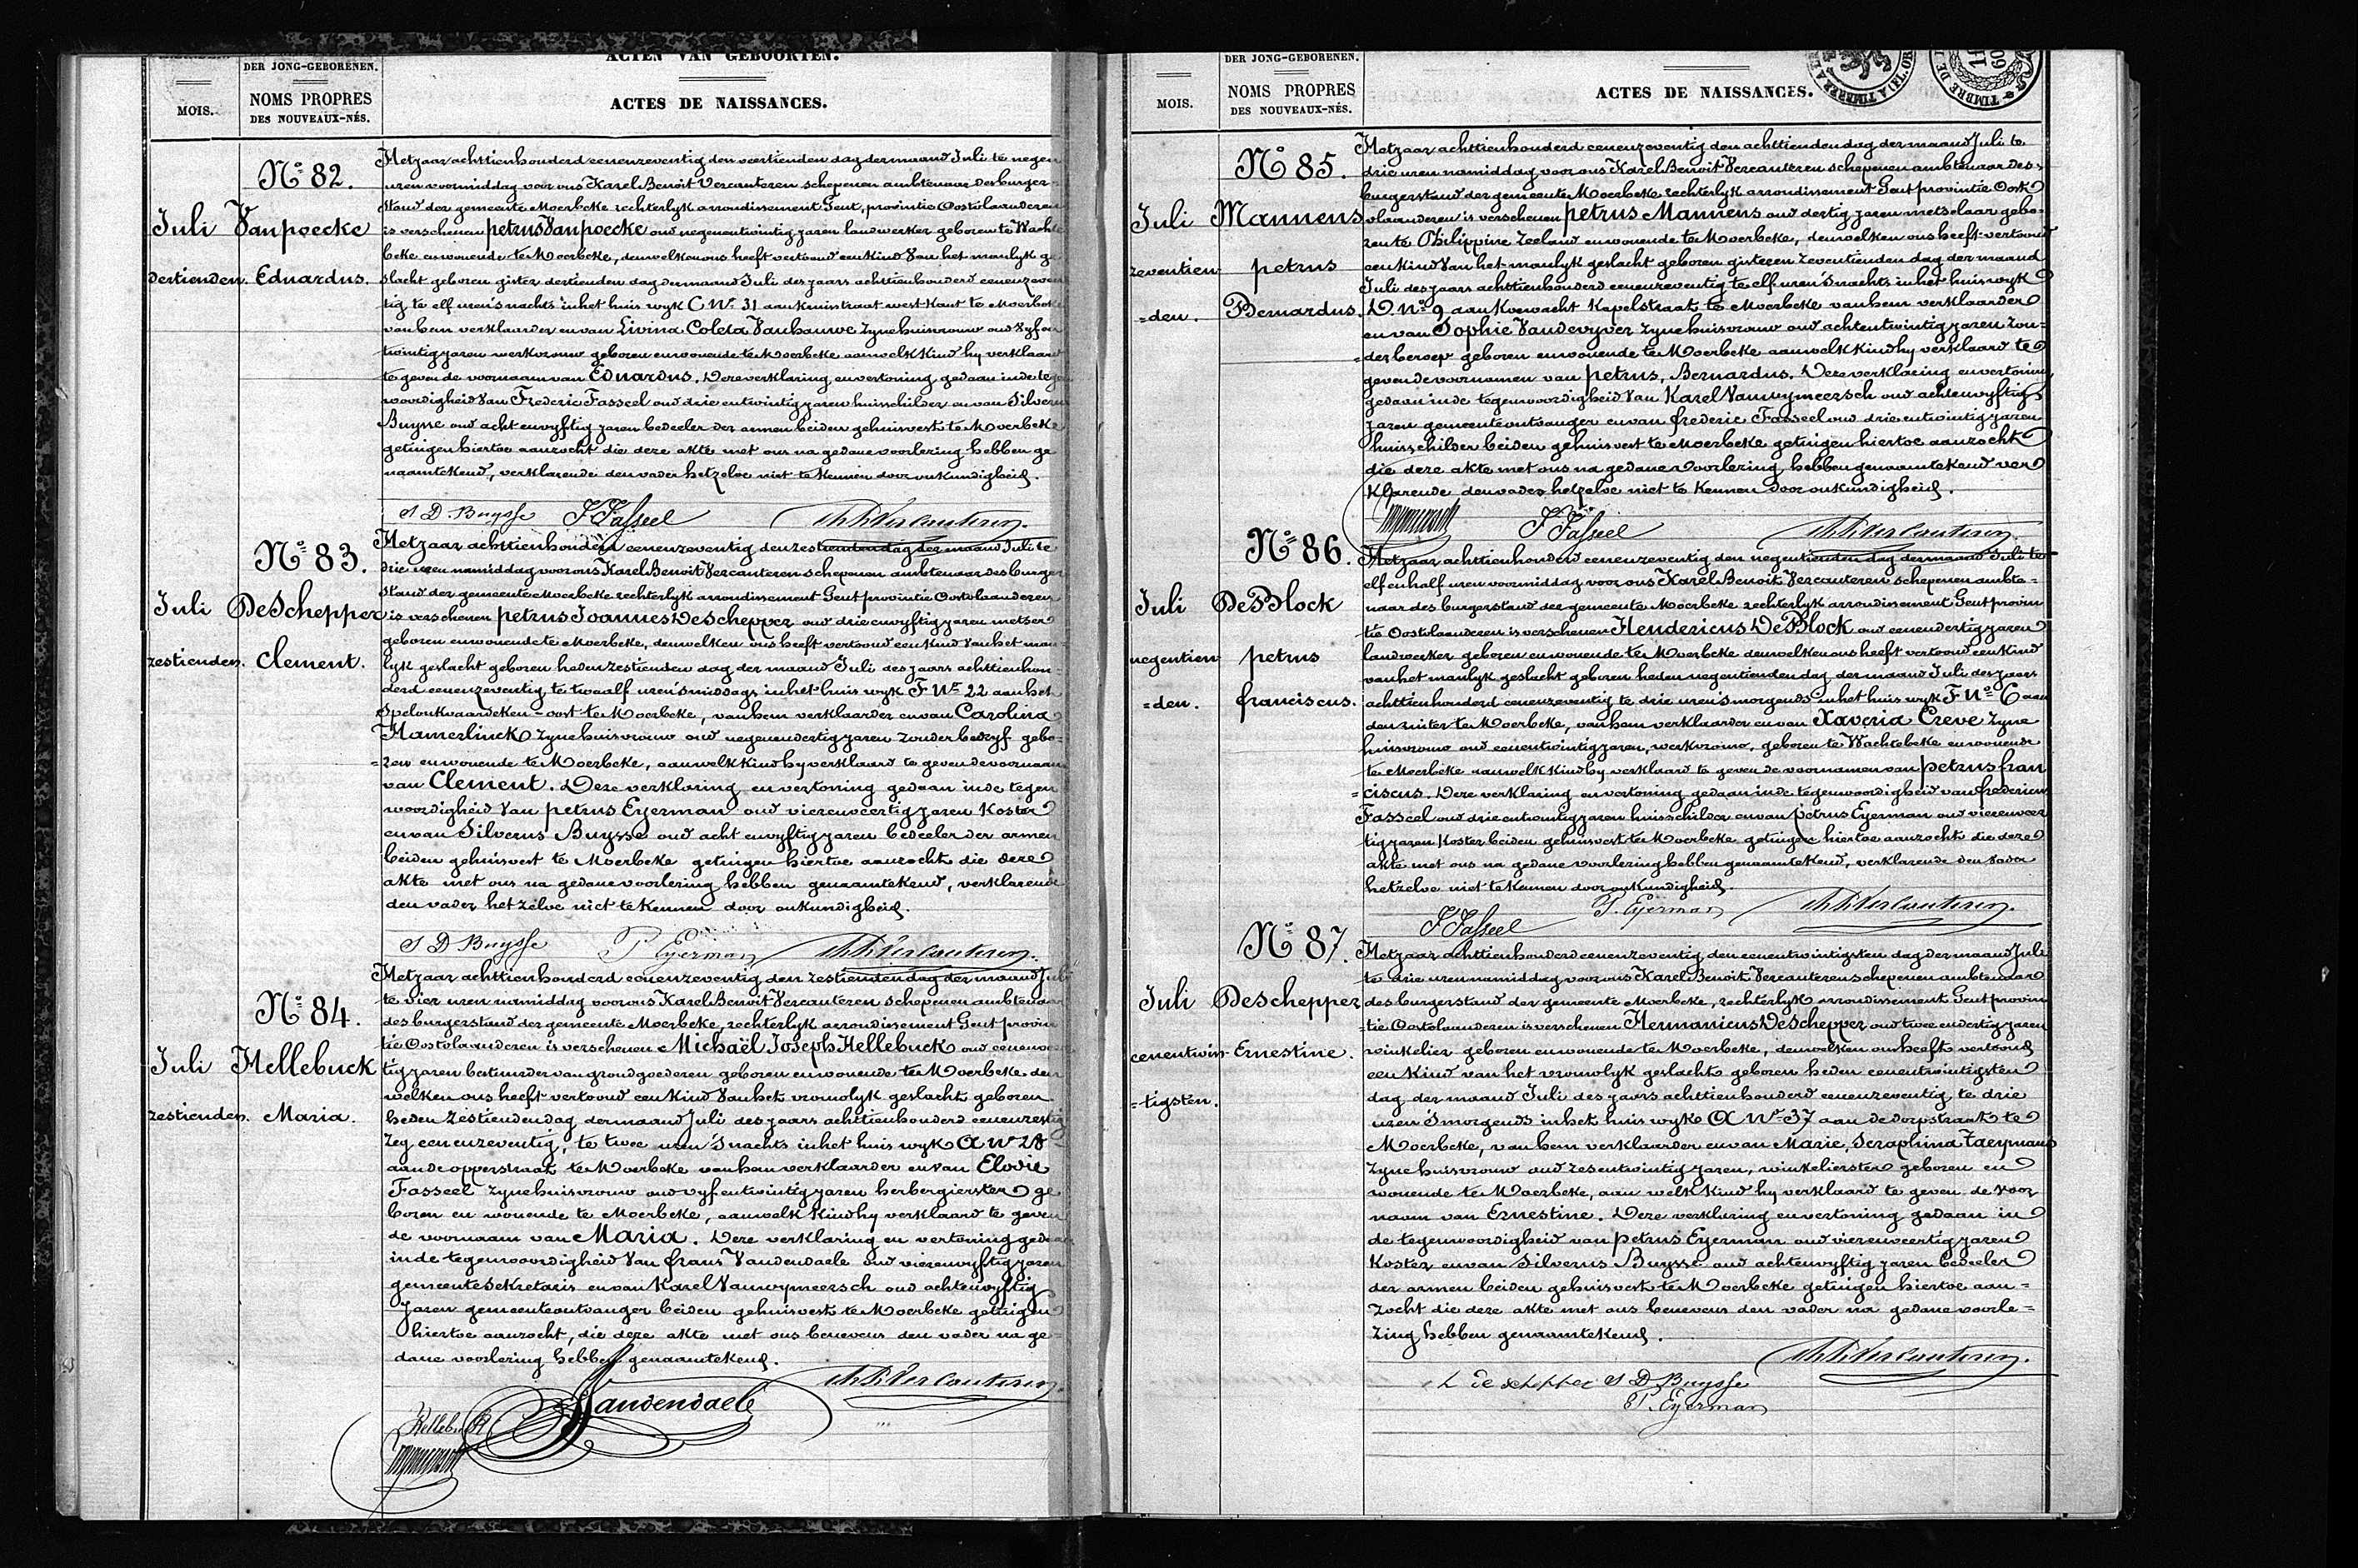 DER JONG-GEBORENEN.
ACTEN VAN GEBOORTEN.
MOIS.
NOMS PROPRES
DES NOUVEAUX-NÉS.
ACTES DE NAISSANCES.
N° 82.
Juli
dertienden.
Vanpoecke
Eduardus.
Hetjaar achttienhonderd eenenzeventig den veertienden dag der maand Juli te negen
uren voormiddag voor ons Karel Benoit Vercauteren schepenen ambtenaar des burger-
stand der gemeente Moerbeke rechterlyk arrondissement Gent, provintie Oostvlaanderen
is verschenen petrus Vanpoecke oud negenentwintig jaren landwerker geboren te Wachte
beke en wonende te Moerbeke, denwelken ons heeft vertoond een kind Van het manlyk ge
slacht geboren gister dertienden dag der maand Juli des jaars achttienhonderd eenenzeven
tig te elf uren 's nachts in het huis wyk C N° 31 aan kruisstraat west kant te Moerbeke
van hem verklaarder en van Livina Coleta Vanhauwe zyne huisvrouw oud vyf en
twintig jaren werkvrouw geboren en wonende te Moerbeke aan welk kind hy verklaard
te geven de voornaam van Eduardus. Deze verklaring en vertoning gedaan in de tegen
woordigheid Van Frederic Fasseel oud drie entwintig jaren huisschilder en van Silveus
Buysse oud acht envyftig jaren bedeeler der armen beiden gehuisvest te Moerbeke
getuigen hiertoe aanzocht die deze akte met ons na gedane voorlezing hebben ge
naamtekend, verklarende den vader hetzelve niet te kennen door onkundigheid.
S D. Buysse F Fasseel Ch B Vercauteren.
N° 83.
Juli
zestienden.
DeSchepper
Clement.
Hetjaar achttienhonderd eenenzeventig den zestienden dag der maand Juli te
drie uren namiddag voor ons Karel Benoit Vercauteren schepenen ambtenaar des burger
stand der gemeente Moerbeke rechterlyk arrondissement Gent provintie Oostvlaanderen
is verschenen petrus Joannes DeSchepper oud drie envyftig jaren metser
geboren en wonende te Moerbeke, denwelken ons heeft vertoond een kind Van het man
lyk geslacht geboren heden zestienden dag der maand Juli des jaars achttienhon-
derd eenenzeventig te twaalf uren 's middags in het huis wyk F N° 22 aan het
Spelonkvaardeken-oost te Moerbeke, van hem verklaarder en van Carolina
Hamerlinck zyne huisvrouw oud negenendertig jaren zonder bedryf gebo-
=ren en wonende te Moerbeke, aan welk kind hy verklaard te geven de voornaam
van Clement. Deze verklaring en vertoning gedaan in de tegen
woordigheid Van petrus Eyerman oud vierenveertig jaren Koster
en van Silveus Buysse oud acht envyftig jaren bedeeler der armen
beiden gehuisvest te Moerbeke getuigen hiertoe aanzocht die deze
akte met ons na gedane voorlezing hebben genaamtekend, verklarende
den vader hetzelve niet te kennen door onkundigheid.
S D Buysse P Eyerman Ch B Vercauteren.
N° 84.
Juli
zestienden.
Hellebuck
Maria.
Hetjaar achttienhonderd eenenzeventig den zestienden dag der maand Juli
te vier uren namiddag voor ons Karel Benoit Vercauteren schepenen ambtenaar
des burgerstand der gemeente Moerbeke, rechterlyk arrondissement Gent provin
tie Oostvlaanderen is verschenen Michaël Joseph Hellebuck oud eenenveer
tig jaren bestuurder van grondgoederen geboren en wonende te Moerbeke den
welken ons heeft vertoond een kind Van het vrouwlyk geslacht geboren
heden zestienden dag der maand Juli des jaars achttienhonderd eenenzestig
zeg eenenzeventig, te twee uren 's nachts in het huis wyk A N° 28
aan de opperstraat te Moerbeke van hem verklaarder en van Elodie
Fasseel zyne huisvrouw oud vyf entwintig jaren herbergierster ge
boren en wonende te Moerbeke, aan welk kind hy verklaard te geven
de voornaam van Maria. Deze verklaring en vertoning gedaan
in de tegenwoordigheid Van frans Vandendaele oud vierenvyftig jaren
gemeente sekretaris en van Karel Vanwymeersch oud achtenvyftig
jaren gemeenteontvanger beiden gehuisvest te Moerbeke getuigen
hiertoe aanzocht, die deze akte met ons benevens den vader na ge
dane voorlezing hebben genaamtekend.
Hellebuck Vandendaele Ch B Vercauteren.
DER JONG-GEBORENEN.
MOIS.
NOMS PROPRES
DES NOUVEAUX-NÉS.
ACTES DE NAISSANCES.
N° 85.
Juli
zeventien
=den.
Mannens
petrus
Bernardus.
Hetjaar achttienhonderd eenenzeventig den achttienden dag der maand Juli te
drie uren namiddag voor ons Karel Benoit Vercauteren schepenen ambtenaar des
burgerstand der gemeente Moerbeke rechterlyk arrondissement Gent provintie Oost
vlaanderen is verschenen petrus Mannens oud dertig jaren metselaar gebo-
ren te Philippine Zeeland en wonende te Moerbeke, denwelken ons heeft vertoond
een kind Van het manlyk geslacht geboren gisteren zeventienden dag der maand
Juli des jaars achttienhonderd eenenzeventig te elf uren 's nachts in het huis wyk
D. N° 9 aan Koewacht Kapelstraat te Moerbeke van hem verklaarder
en van Sophie Vandevyver zyne huisvrouw oud achtentwintig jaren zon-
=der beroep geboren en wonende te Moerbeke aan welk kind hy verklaard te
geven de voornamen van petrus, Bernardus. Deze verklaring en vertoning
gedaan in de tegenwoordigheid Van Karel Vanwymeersch oud achtenvyftig
jaren gemeenteontvanger en van frederic Fasseel oud drie entwintig jaren
huisschilder beiden gehuisvest te Moerbeke getuigen hiertoe aanzocht
die deze akte met ons na gedane voorlezing hebben genaamtekend ver
klarende den vader hetzelve niet te kennen door onkundigheid.
F Fasseel Ch B Vercauteren.
N° 86.
Juli
negentien
=den.
DeBlock
petrus
franciscus.
Hetjaar achttienhonderd eenenzeventig den negentienden dag der maand Juli te
elf en half uren voormiddag voor ons Karel Benoit Vercauteren schepenen ambte-
naar des burgerstand der gemeente Moerbeke rechterlyk arrondissement Gent provin
tie Oostvlaanderen is verschenen Hendericus DeBlock oud eenendertig jaren
landwerker geboren en wonende te Moerbeke denwelken ons heeft vertoond een kind
van het manlyk geslacht geboren heden negentienden dag der maand Juli des jaars
achttienhonderd eenenzeventig te drie uren 's morgends in het huis wyk F N° 6 aan
den ruiter te Moerbeke, van hem verklaarder en van Xaveria Creve zyne
huisvrouw oud eenentwintig jaren, werkvrouw, geboren te Wachtebeke en wonende
te Moerbeke aan welk kind hy verklaard te geven de voornamen van petrus fran
=ciscus. Deze verklaring en vertoning gedaan in de tegenwoordigheid van frederic
Fasseel oud drie entwintig jaren huisschilder en van petrus Eyerman oud vierenveer
tig jaren Koster beiden gehuisvest te Moerbeke getuigen hiertoe aanzocht die deze
akte met ons na gedane voorlezing hebben genaamtekend, verklarende den vader
hetzelve niet te kennen door onkundigheid.
F Fasseel P. Eyerman Ch B Vercauteren.
N° 87.
Juli
eenentwin-
=tigsten.
DeSchepper
Ernestine.
Hetjaar achttienhonderd eenenzeventig den eenentwintigsten dag der maand Juli
te drie uren namiddag voor ons Karel Benoit Vercauteren schepenen ambtenaar
des burgerstand der gemeente Moerbeke, rechterlyk arrondissement Gent provin
=tie Oostvlaanderen is verschenen Hermanicus DeSchepper oud twee endertig jaren
winkelier geboren en wonende te Moerbeke, denwelken ons heeft vertoond
een kind van het vrouwlyk geslacht geboren heden eenentwintigsten
dag der maand Juli des jaars achttienhonderd eenenzeventig te drie
uren 's morgends in het huis wyk A N° 37 aan de dorpstraat te
Moerbeke, van hem verklaarder en van Marie, Seraphina Taeymans
zyne huisvrouw oud zesentwintig jaren, winkelierster geboren en
wonende te Moerbeke, aan welk kind hy verklaard te geven de voor
naam van Ernestine. Deze verklaring en vertoning gedaan in
de tegenwoordigheid van petrus Eyerman oud vierenveertig jaren
Koster en van Silveus Buysse oud achtenvyftig jaren bedeeler
der armen beiden gehuisvest te Moerbeke getuigen hiertoe aan=
zocht die deze akte met ons benevens den vader na gedane voorle=
zing hebben genaamtekend.
Ch B Vercauteren.
H de schepper S D Buysse
P. Eyerman